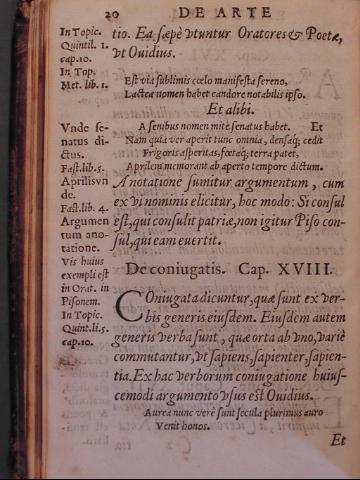 20 DE ARTE
In Topic.
Quintil. 1.
cap.10.
In Top.
Met. lib. 1.
Vnde se-
natus di
ctus.
Fast.lib.5.
Aprilis vn
de.
Fast.lib. 4.
Argumen
tum ano-
tatione.
Vis huius
exempli est
in Orat. in
Pisonem.
In Topic.
Quint.li.5.
cap.10.
tio. Ea sæpè vtuntur Oratores & Poetæ,
vt Ouidius.
Est via sublimis cœlo manifesta sereno,
Lactea nomen habet candore notabilis ipso.
Et alibi.
A senibus nomen mite senatus habet. Et
Nam quia ver aperit tunc omnia, densaq; cedit
Frigoris asperitas, fœtaq; terra patet,
Aprilem memorant ab aperto tempore dictum.
A notatione sumitur argumentum, cum
ex vi nominis elicitur, hoc modo: Si consul
est, qui consulit patriæ, non igitur Piso con-
sul, qui eam euertit.
De coniugatis. Cap. XVIII.
Coniugata dicuntur, quæ sunt ex ver-
bis generis eiusdem. Eiusdem autem
generis verba sunt, quæ orta ab vno, variè
commutantur, vt sapiens, sapienter, sapien-
tia. Ex hac verborum coniugatione huius-
cemodi argumento vsus est Ouidius.
Aurea nunc verè sunt secula plurimus auro
Venit honos.
Et